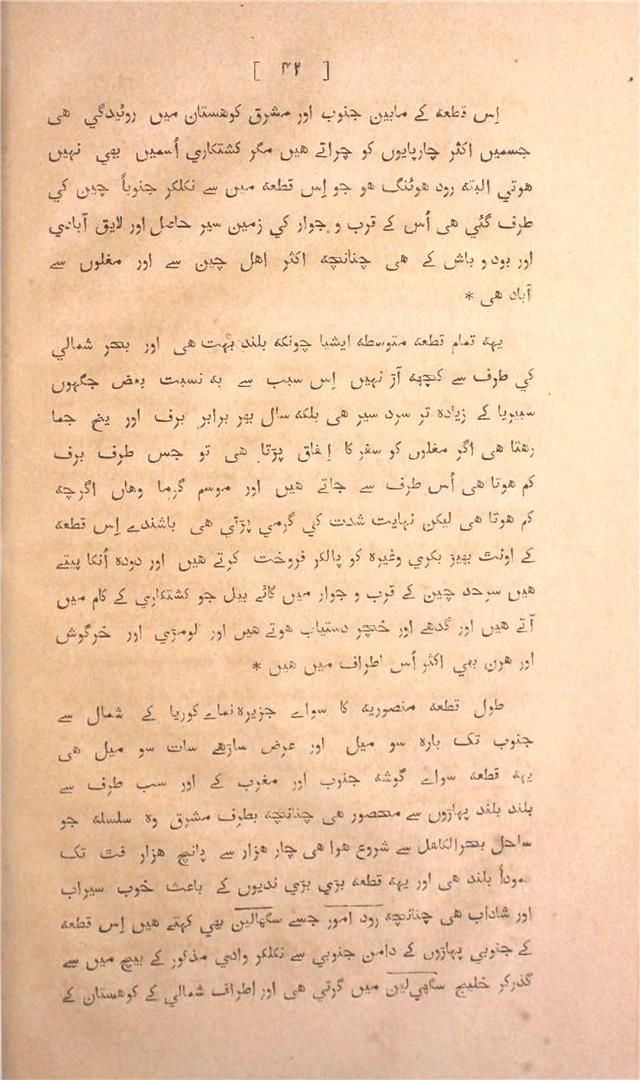 [ ۴۲ ]
اِس قطعہ کے مابین جنوب اور مشرق کوهستان میں روئیدگي هی
جسمیں اکثر چارپایوں کو چراتے هیں مگر کشتکاري اُسمیں بهي نهیں
هوتي البتہ رود هوئنگ هو جو اِس قطعہ میں سے نکلکر جنوباً چین کي
طرف گئي هی اُس کے قرب و جوار کي زمین سیر حاصل اور لایق آبادي
اور بود و باش کے هی چنانچہ اکثر اهل چین سے اور مغلوں سے
آباد هی *
یهہ تمام قطعہ متوسطہ ایشیا چونکہ بلند بہت هی اور بحر شمالي
کي طرف سے کچهہ آڑ نہیں اِس سبب سے بہ نسبت بعض جگهوں
سبیریا کے زیادہ تر سرد سیر هی بلکہ سال بهر برابر برف اور یخ جما
رهتا هی اگر مغلوں کو سفر کا اِتفاق پڑتا هی تو جس طرف برف
کم هوتا هی اُس طرف سے جاتے هیں اور موسم گرما وهاں اگرچہ
کم هوتا هی لیکن نہایت شدت کي گرمي پڑتي هی باشندے اِس قطعہ
کے اونٹ بهیڑ بکري وغیرہ کو پالکر فروخت کرتے هیں اور دودہ اُنکا پیتے
هیں سرحد چین کے قرب و جوار میں گائے بیل جو کشتکاري کے کام میں
آتے هیں اور گدهے اور خچر دستیاب هوتے هیں اور لومڑي اور خرگوش
اور هرن بهي اکثر اُس اطراف میں هیں *
طول قطعہ منصوریہ کا سواے جزیرہ نماے کوریا کے شمال سے
جنوب تک بارہ سو میل اور عرض ساڑهے سات سو میل هی
یهہ قطعہ سواے گوشہ جنوب اور مغرب کے اور سب طرف سے
بلند بلند پہاڑوں سے محصور هی چنانچہ بطرف مشرق وہ سلسلہ جو
ساحل بحرالکاهل سے شروع هوا هی چار هزار سے پانچ هزار فٹ تک
عموداً بلند هی اور یهہ قطعہ بڑي بڑي ندیوں کے باعث خوب سیراب
اور شاداب هی چنانچہ رود امور جسے سگهالین بهي کہتے هیں اِس قطعہ
کے جنوبي پہاڑوں کے دامن جنوبي سے نکلکر وادي مذکور کے بیچ میں سے
گذرکر خلیج سگهي‌لین میں گرتي هی اور اطراف شمالي کے کوهستان کے